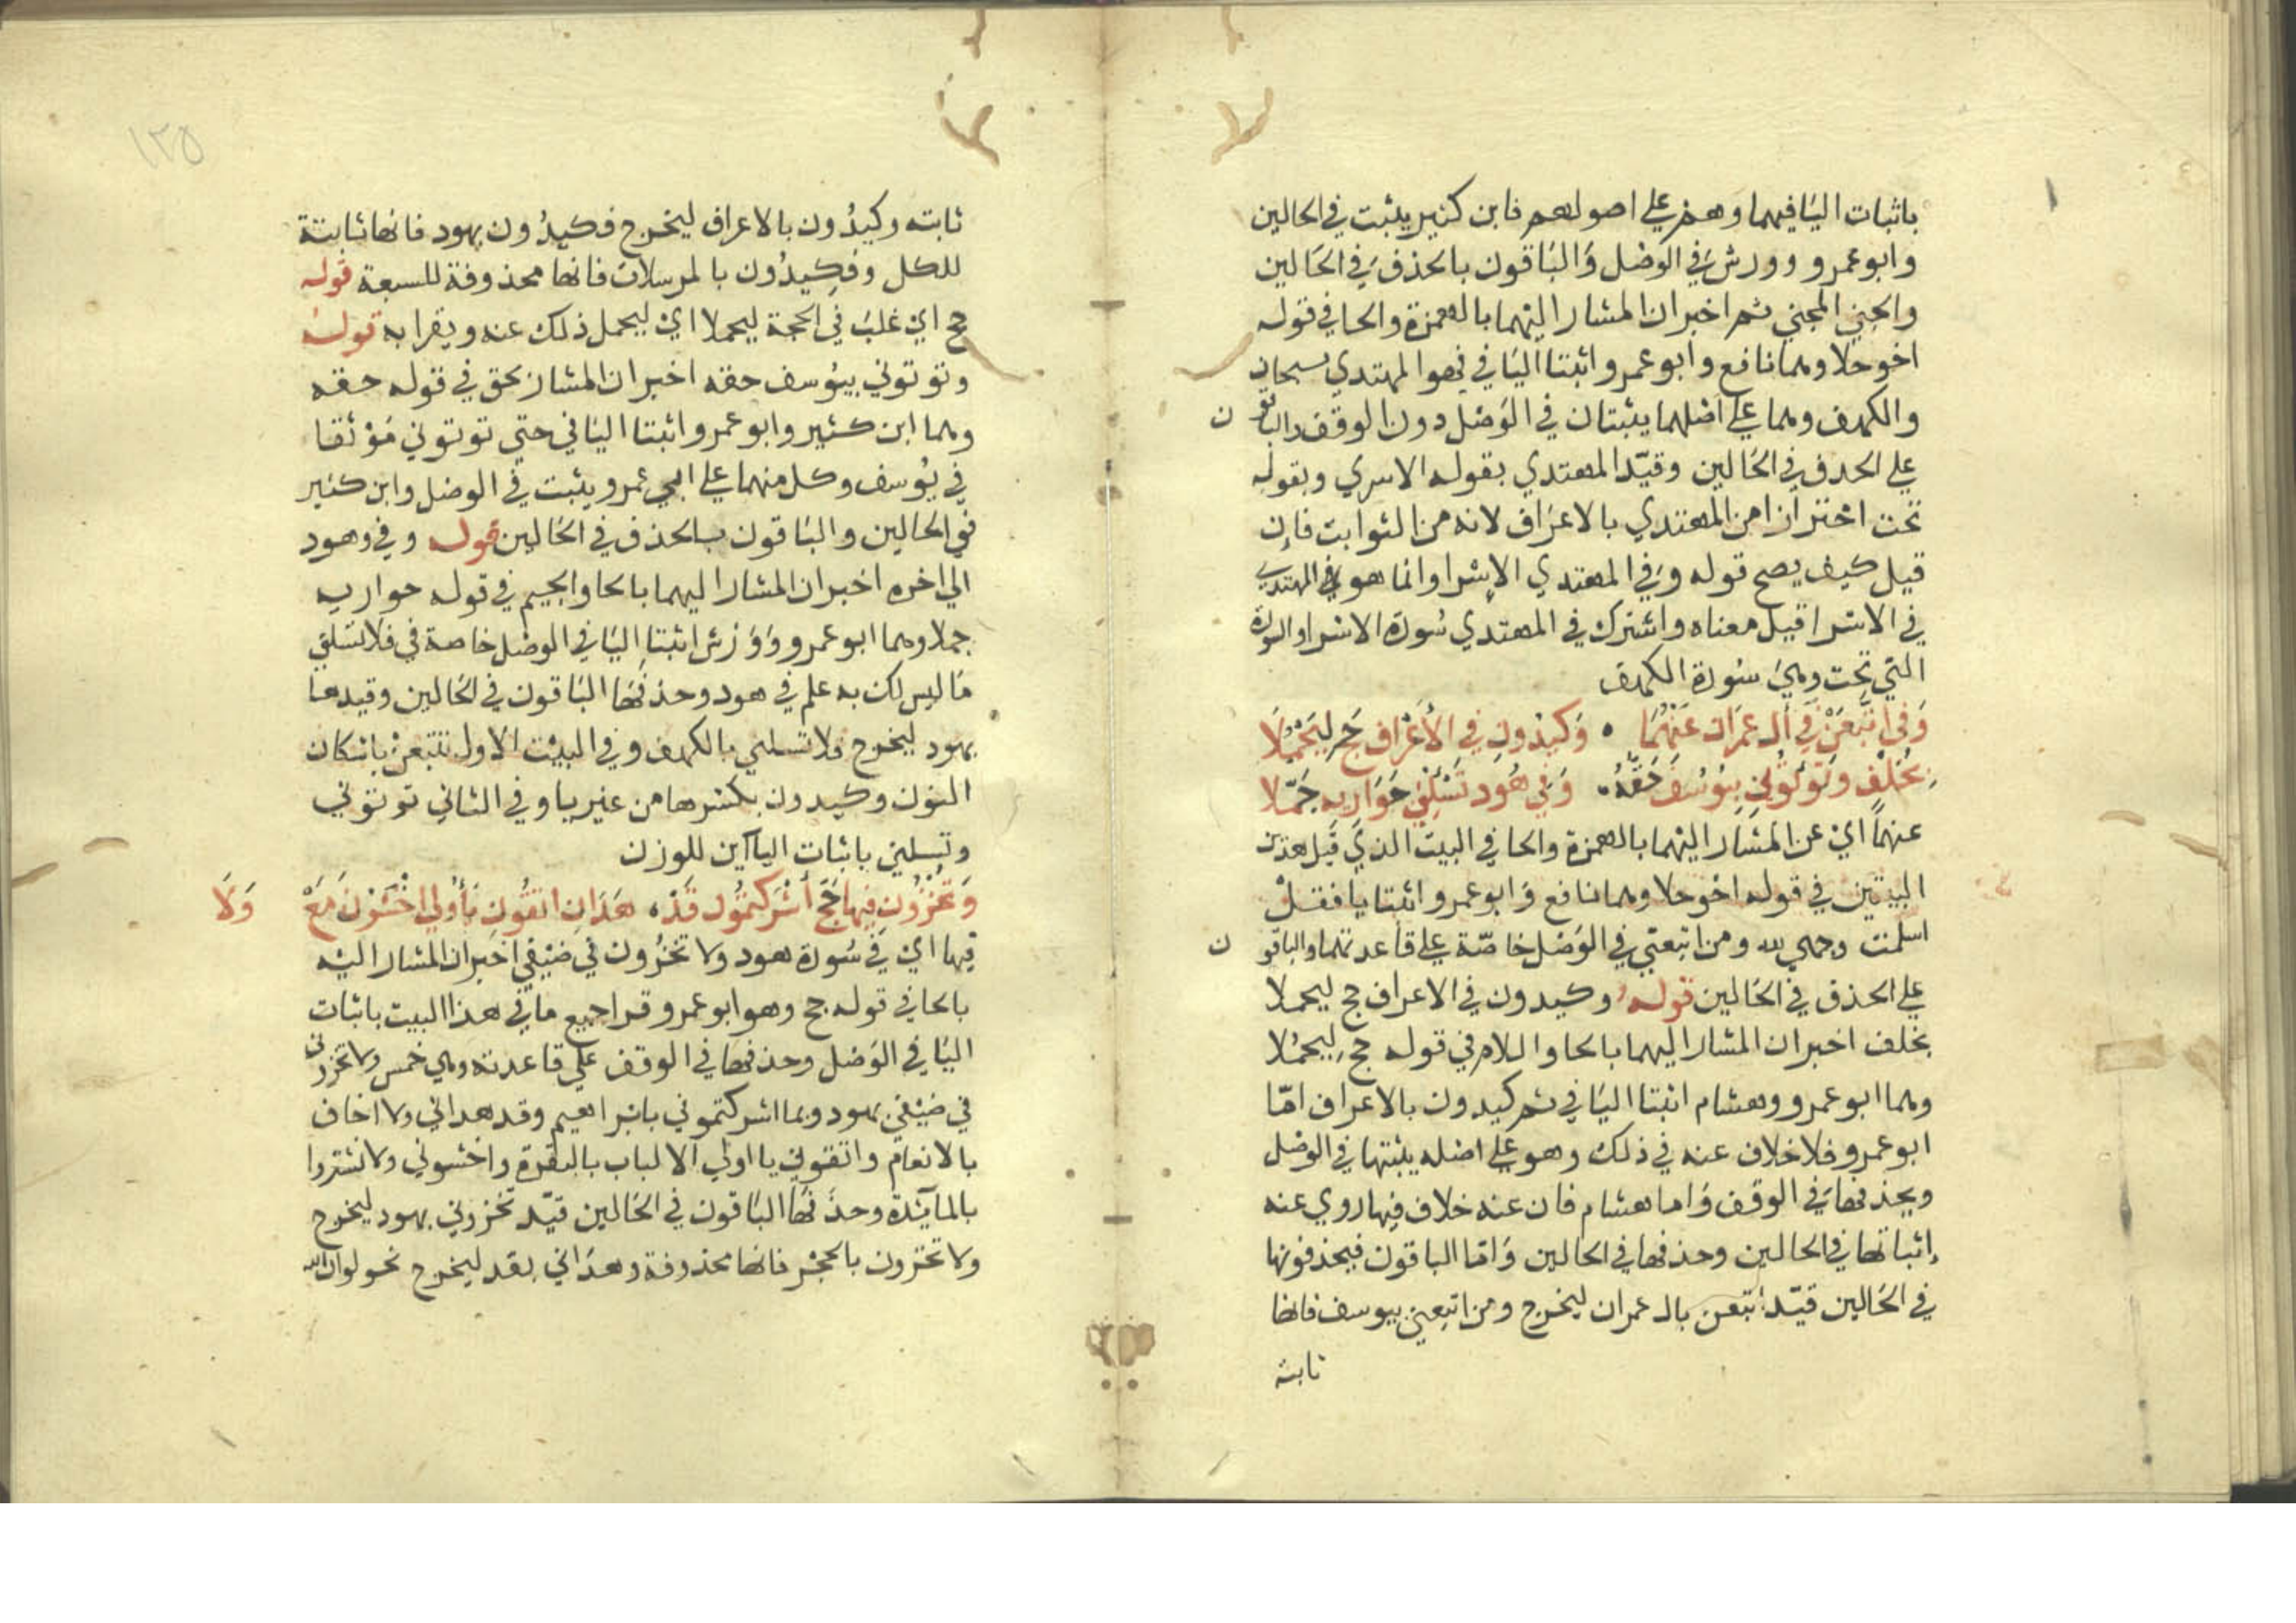 باثبات اليا فيهما وهم على اصولهم فابن كثير يثبت في الحالين
وابو عمرو وورش في الوصل والباقون بالحذف في الحالين
واجني المجني ثم اخبر ان المشار اليهما بالهمزة والحا في قوله
اخو حلا وهما نافع وابو عمرو اثبتا اليا في فهو المهتدي بسبحان
والكهف وهما على اصلهما يثبتان في الوصل دون الوقف والباقون
على الحذف في الحالين وقيد المهتدي بقوله الاسرى وبقوله
تحت احترازا من المهتدي بالاعراف لانه من الثوابت فإن
قيل كيف يصح قوله وفي المهتدي الإسرا وانما هو في المهتدي
في الاسرا قيل معناه واشترك في المهتدي سورة الاسرا والسورة
التي تحت وهي سورة الكهف
وَفي اتَّبَعَنْ في آل عمرَان عَنْهُمَا • وَكيدُونِ في الأعْرَاف حَج لِيُحْمَلَا
بِخُلْفٍ وَتُؤْتُوني بِيُوسُفَ حَقُّهُ • وَفي هُود تَسْئَلْني حَوَاريه جَمَّلا
عنهما اي عن المشار اليهما بالهمزة والحا في البيت الذي قبل هذين
البيتين في قوله اخو حلا وهما نافع وابو عمرو اثبتا يا فقل
اسلمت وجهي لله ومن اتبعني في الوصل خاصة على قاعدتهما والباقون
على الحذف في الحالين قوله وكيدون في الاعراف حج ليحملا
بخلف اخبر ان المشار اليهما بالحا واللام في قوله حج ليحملا
وهما ابو عمرو وهشام اثبتا اليا في ثم كيدون بالاعراف امّا
ابو عمرو فلا خلاف عنه في ذلك وهو على اصله يثبتها في الوصل
ويحذفها في الوقف واما هشام فان عنه خلاف فيها روي عنه
إثباتها في الحالين وحذفها في الحالين وامّا الباقون فيحذفونها
في الحالين قيّد اتبعن بال عمران ليخرج ومن اتبعني بيوسف فانها
ثابته
١٢٥
ثابته وكيدُون بالاعراف ليخرج فكيدُون بهود فانها ثابتة
للكل وفكيدُون بالمرسلات فانها محذوفة للسبعة قوله
حج اي غلب في الحجة ليحملا اي ليحمل ذلك عنه ويقرا به قوله
وتوتوني بيوسف حقه اخبر ان المشار بحق في قوله حقه
وهما ابن كثير وابو عمرو اثبتا اليا في حتى توتوني مَوْثقا
في يُوسف وكل منهما على ابي عمرو يثبت في الوصل وابن كثير
في الحالين والباقون بالحذف في الحالين قوله وفي وهود
الى اخره اخبر ان المشار اليهما بالحا والجيم في قوله حواريه
جملا وهما ابو عمرو وَوَرْش اثبتا اليا في الوصل خاصة في فلا تسلني
ما ليس لك به علم في هود وحذفها الباقون في الحالين وقيدها
بهود ليخرج فلا تسلني بالكهف وفي البيت الاول تتبعن باسكان
النون وكيدون بكسرها من غير يا وفي الثاني توتوني
وتسلني باثبات الياآين للوزن
وَتُخْزُونِ فِيهَا حَجَّ أشْرَكْتمُون قَدْ • هَدَانِ اتقُونِ يَأُولي اخْشَوْنَ مَعْ وَلَا
فيها اي في سُورة هود ولا تخزُون في ضيْفي اخبر ان المشار اليه
بالحا في قوله حج وهو ابو عمرو قرا جميع ما في هذا البيت باثبات
اليا في الوصل وحذفها في الوقف على قاعدته وهي خمس ولا تخزوني
في ضيْفي بهود وبما اشركتموني بابراهيم وقد هداني ولا اخاف
بالانعام واتقوني يا اولي الالباب بالبقرة واخشوني ولا تشتروا
بالمآيدة وحذفها الباقون في الحالين قيّد تخزوني بهود ليخرج
ولا تخزون بالحجر فانها محذوفة وهداني بقد ليخرج نحو لو ان الله